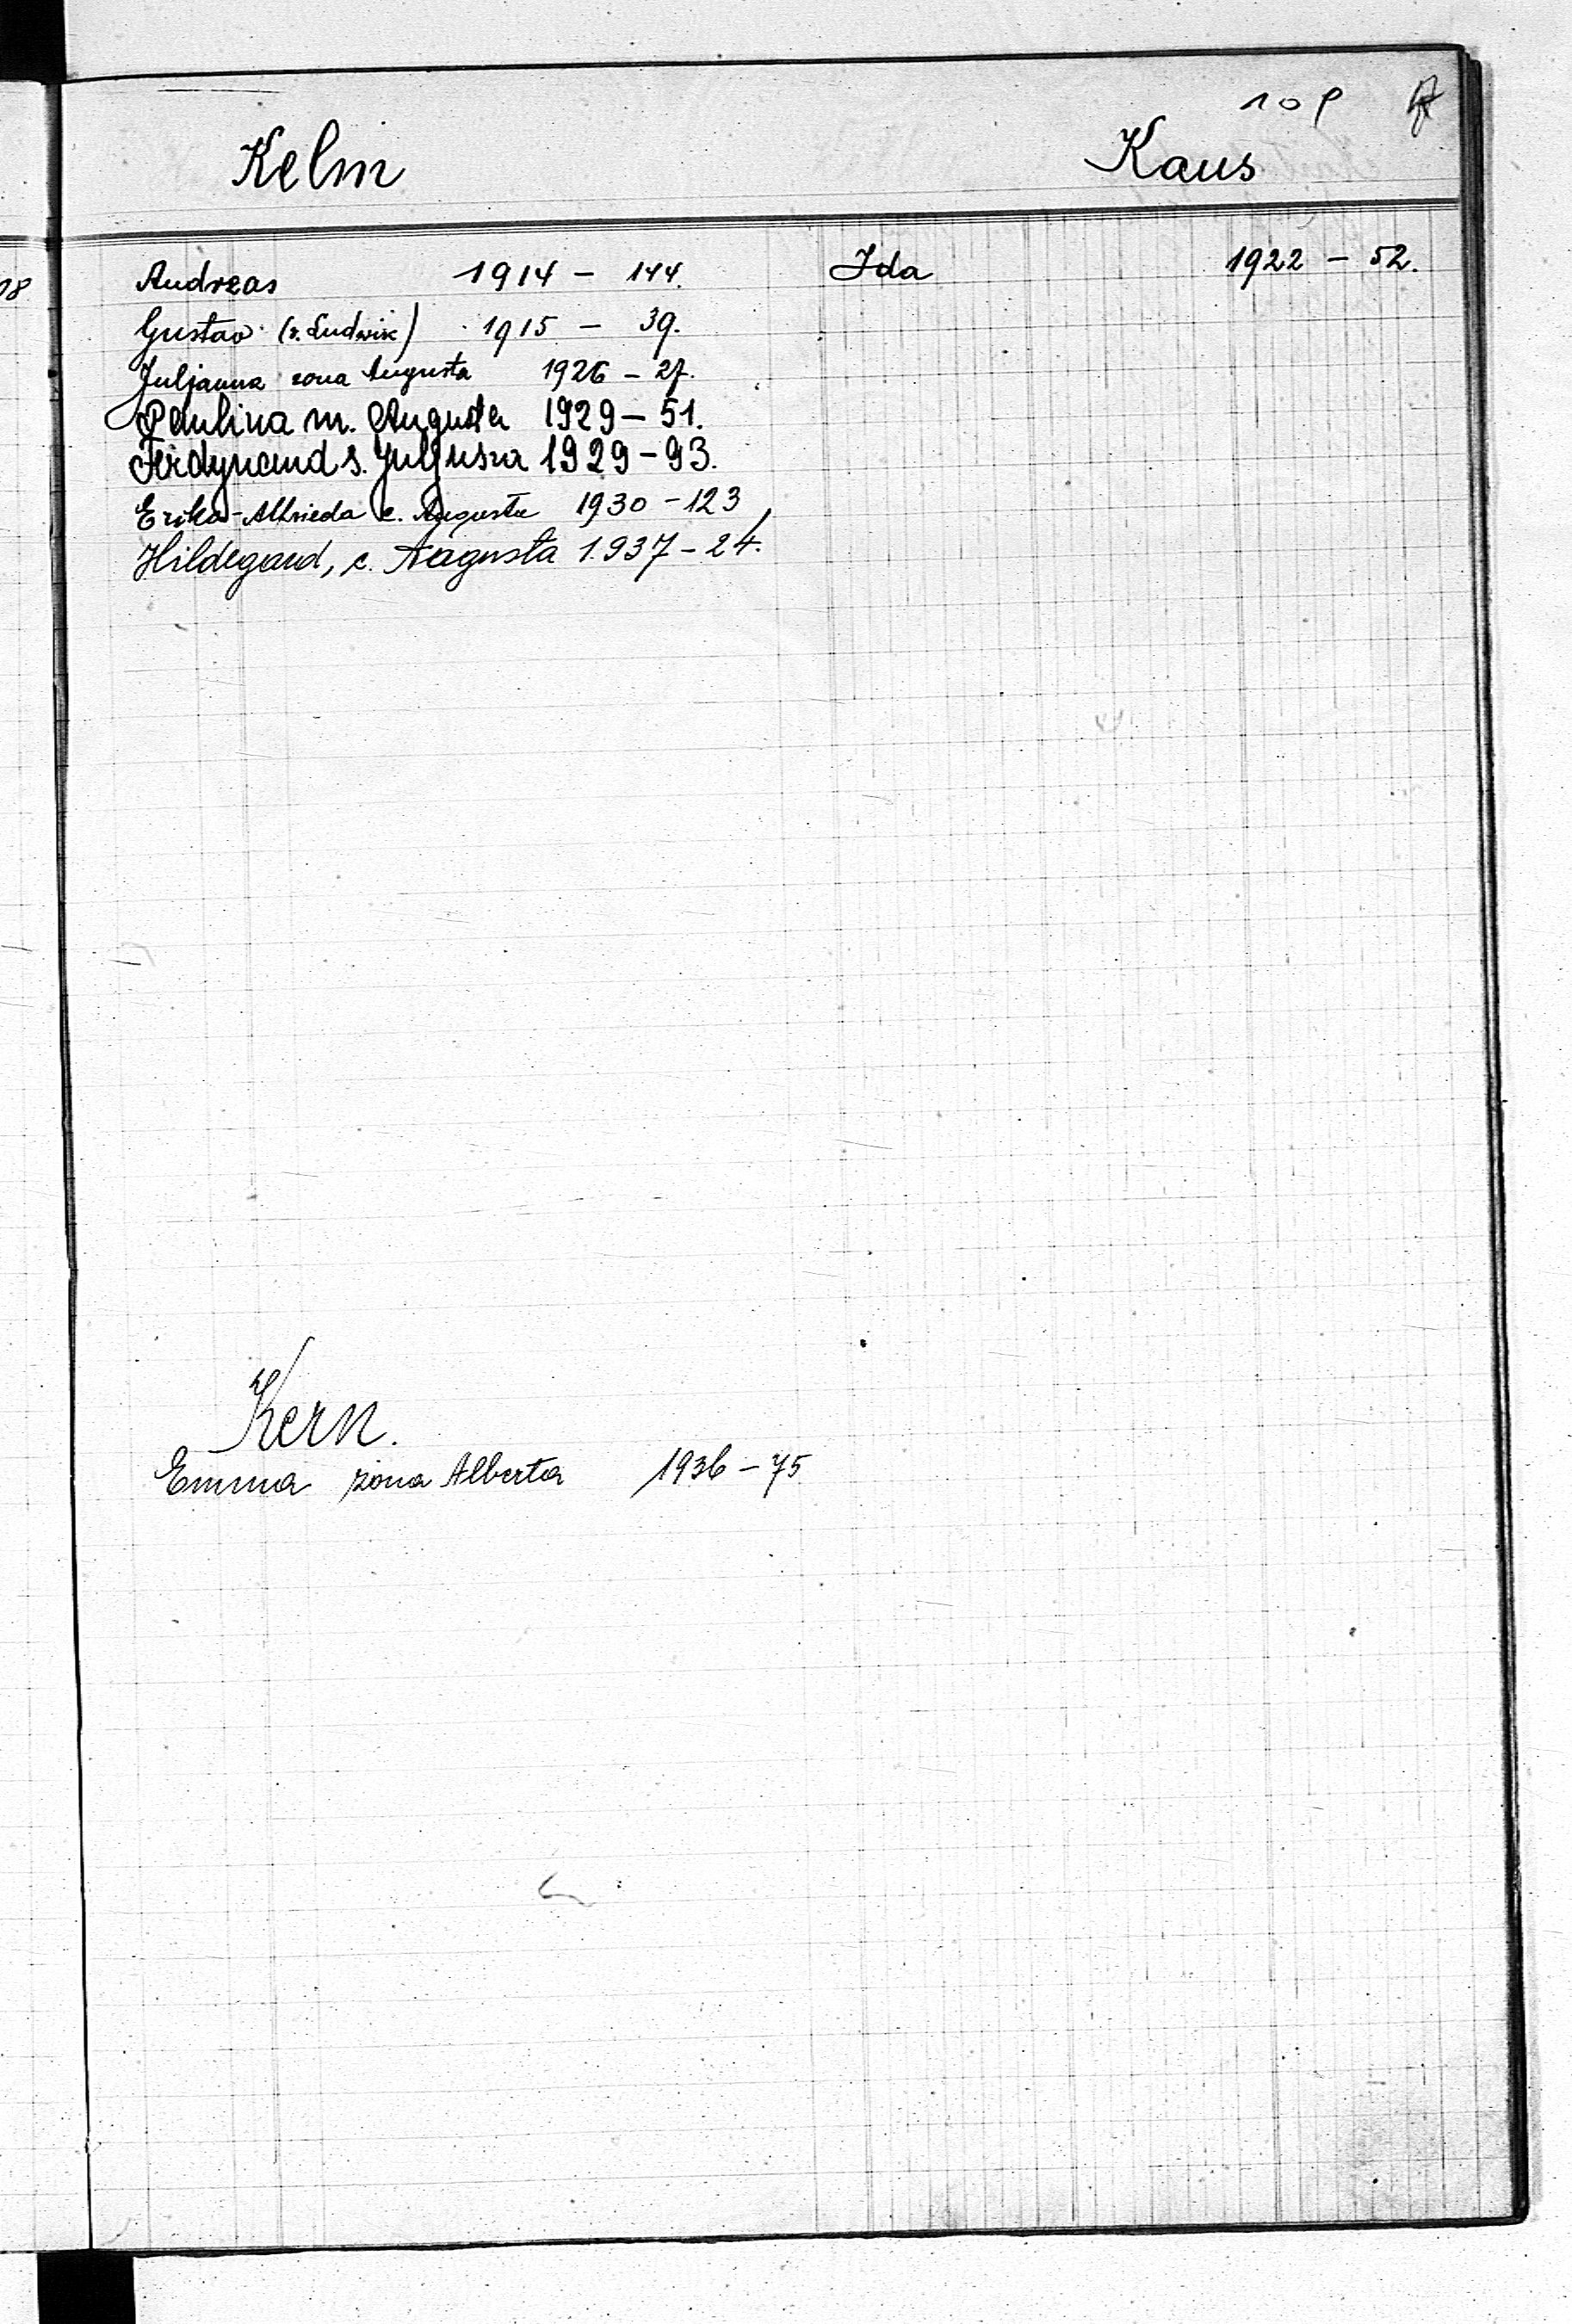 109
Kelm
Andreas 1914 - 144.
Gustav (s. Ludwik) 1915 - 39.
Juljanna żona Augusta 1926 - 27.
Paulina m. Augusta 1929 - 51.
Ferdynand s. Juljusza 1929 - 93.
Erika-Alfrieda c. Augusta 1930 - 123
Hildegard, c. Augusta 1937 - 24.
Kern.
Emma żona Alberta 1936 - 75
Kaus
Ida 1922 - 52.